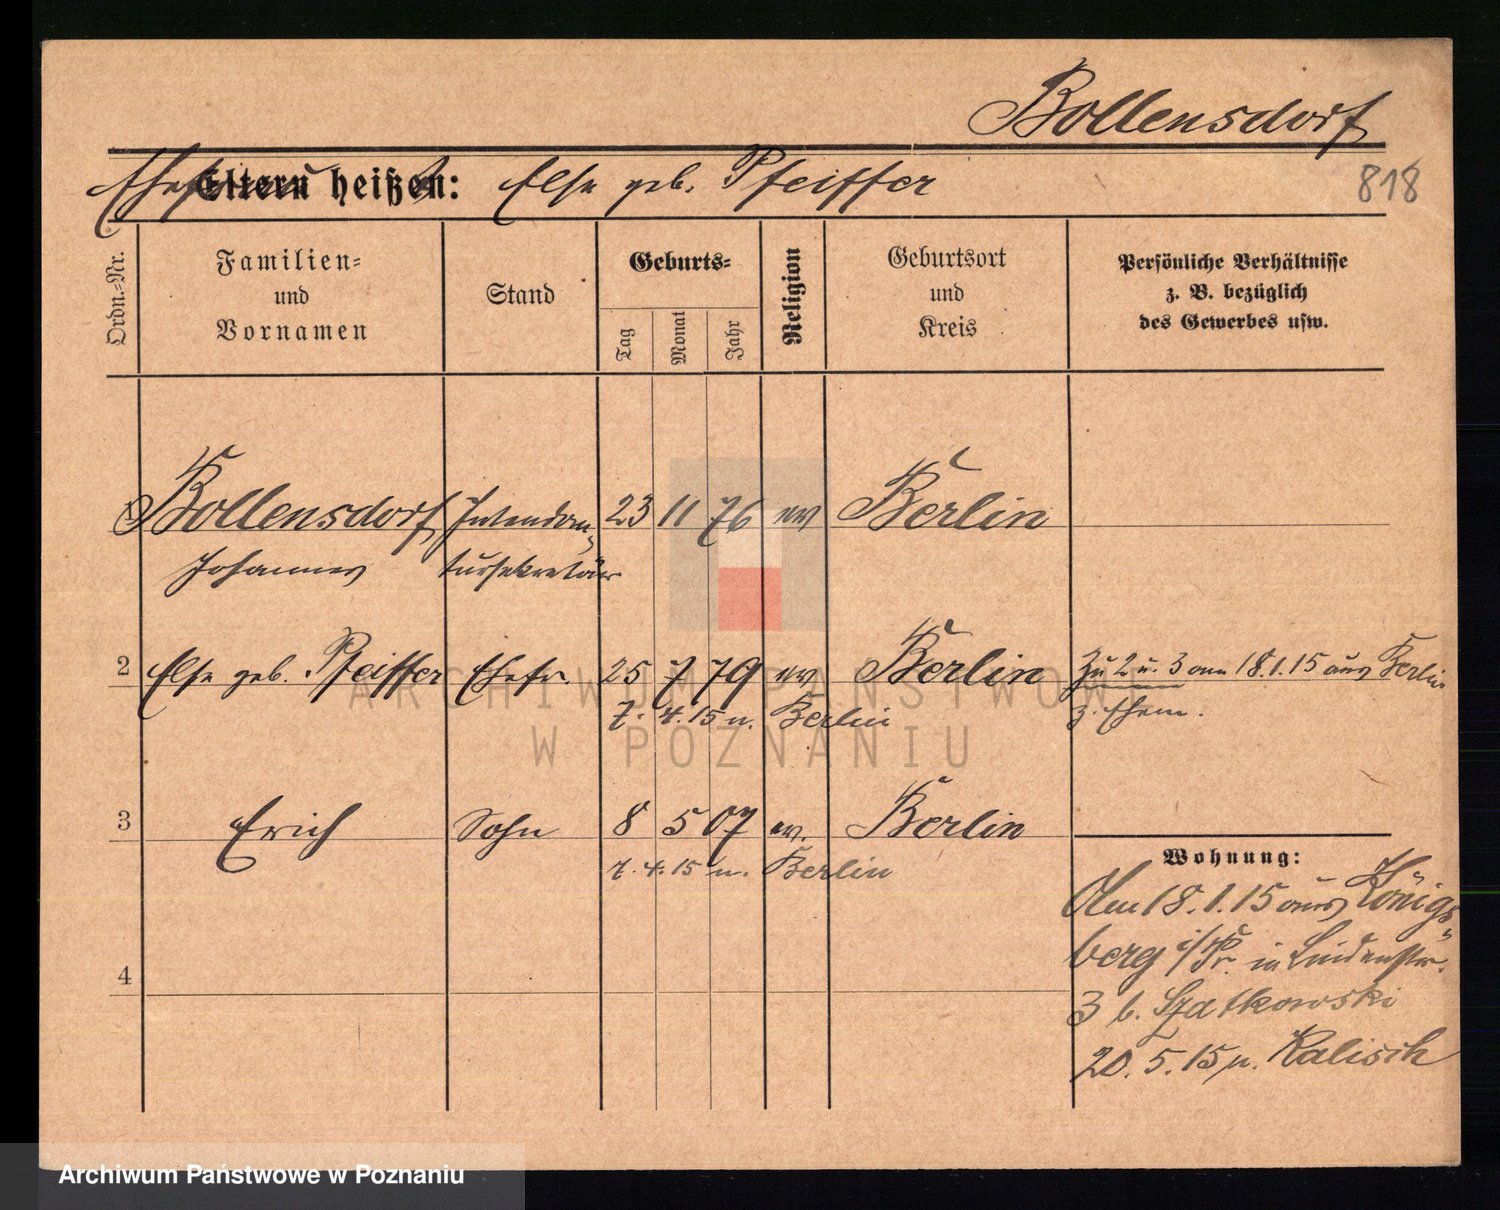 Bollensdorf
Eltern heißen: Else geb. Pfeiffer
818
Ordn.-Nr.
Familien-
und
Vornamen
Stand
Geburts-
Tag
Monat
Jahr
Religion
Geburtsort
und
Kreis
Persönliche Verhältnisse
z. B. bezüglich
des Gewerbes usw.
Bollensdorf Intendan- 23 11 76 ev Berlin
Johannes tursekretär
2 Else geb. Pfeiffer Ehefr. 25 7 79 ev Berlin Zu 2 u. 3 am 18.1.15 aus Berlin
7. 4. 15 n. Berlin z. Ehem.
3 Erich Sohn 8 5 07 ev. Berlin
7. 4. 15 n. Berlin
Wohnung:
Am 18.1.15 aus Königs-
berg i/Pr. in Lindenstr.
3 b. Szatkowski
20. 5. 15 n. Kalisch
4
ARCHIWUM PAŃSTWOWE
W POZNANIU
Archiwum Państwowe w Poznaniu